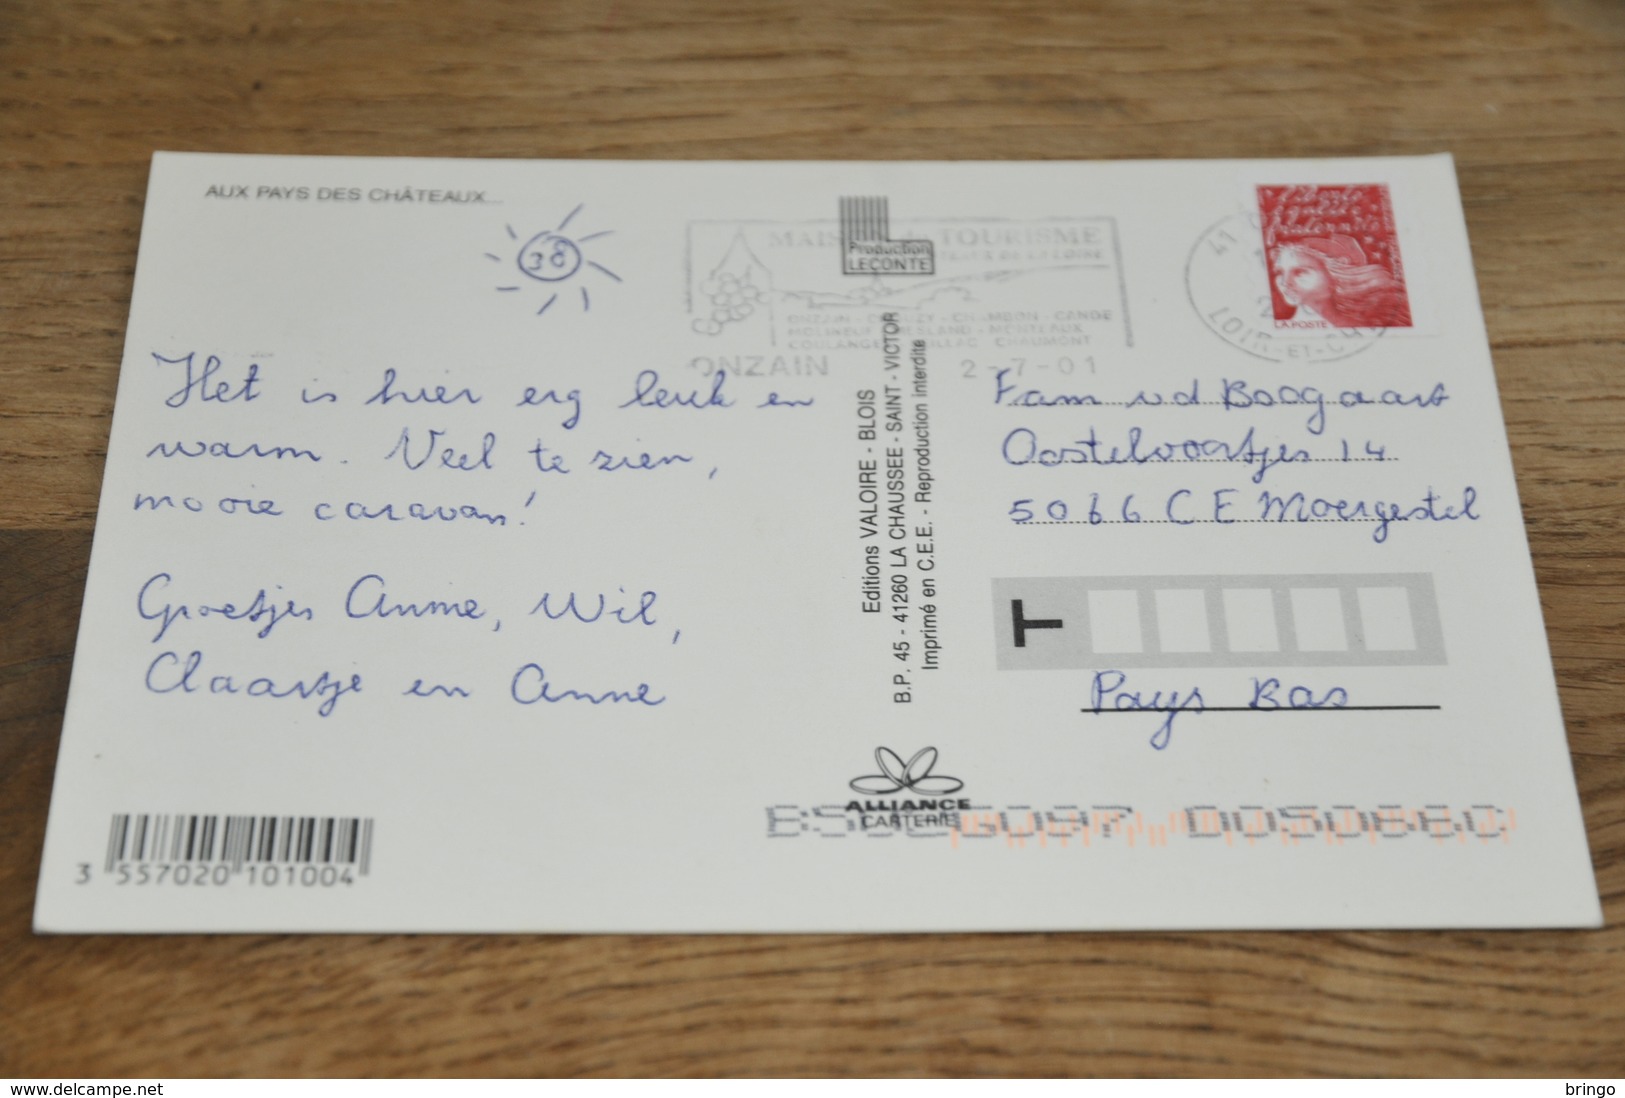 AUX PAYS DES CHÂTEAUX...
38
Het is hier erg leuk en
warm. Veel te zien,
mooie caravan!
Groetjes Anne, Wil,
Claartje en Anne
3 557020 101004
Production
LECONTE
Editions VALOIRE - BLOIS
B.P. 45 - 41260 LA CHAUSSEE - SAINT - VICTOR
Imprimé en C.E.E. - Reproduction interdite
ALLIANCE
CARTERIE
TOURISME
ONZAIN
2-7-01
41
LOIR-ET-CHER
LA POSTE
Fam vd Boogaart
Oostelvoortjes 14
5066 CE Moergestel
T
Pays Bas
www.delcampe.net
bringo